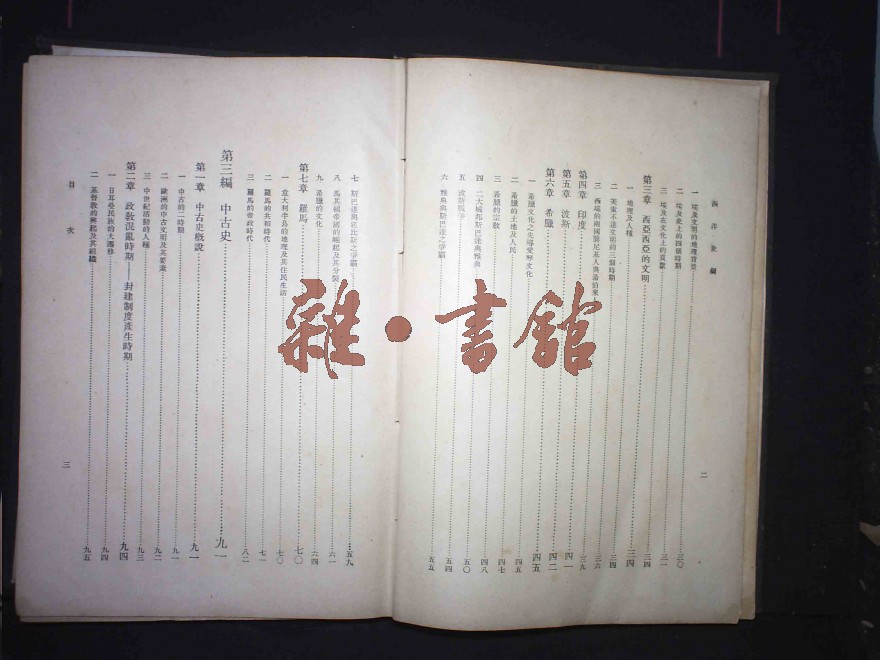 西洋史綱
一 埃及文明的地理背景 三〇
二 埃及史上的四個時期
三 埃及在文化上的貢獻 三一
第三章 西亞西亞的文明 三四
一 地理及人種 三四
二 美索不達文明的三個時期 三四
三 西端的兩國腓尼基人與希伯來 三六
第四章 印度 三九
第五章 波斯 四一
第六章 希臘 四二
一 希臘文化之先導愛琴文化 四五
二 希臘的土地及人民 四五
三 希臘的宗教 四七
四 二大城邦斯巴達與雅典 四八
五 波斯戰爭 五〇
六 雅典與斯巴達之爭霸 五四
五五
二
七 斯巴達與底比斯之爭霸 五九
八 馬其頓帝國的崛起及其分裂 六一
九 希臘的文化 六四
第七章 羅馬 七〇
一 意大利半島的地理及其住民生活 七〇
二 羅馬的共和時代 七一
三 羅馬的帝政時代 八二
第三編 中古史 九一
第一章 中古史概說 九一
一 中古的二時期 九一
二 歐洲的中古文明及其要素 九二
三 中世紀活動的人種 九三
第二章 政教混亂時期——封建制度產生時期 九四
一 日耳曼民族的大遷移 九四
二 基督教的興起及其組織 九五
目次
三
雜·書館